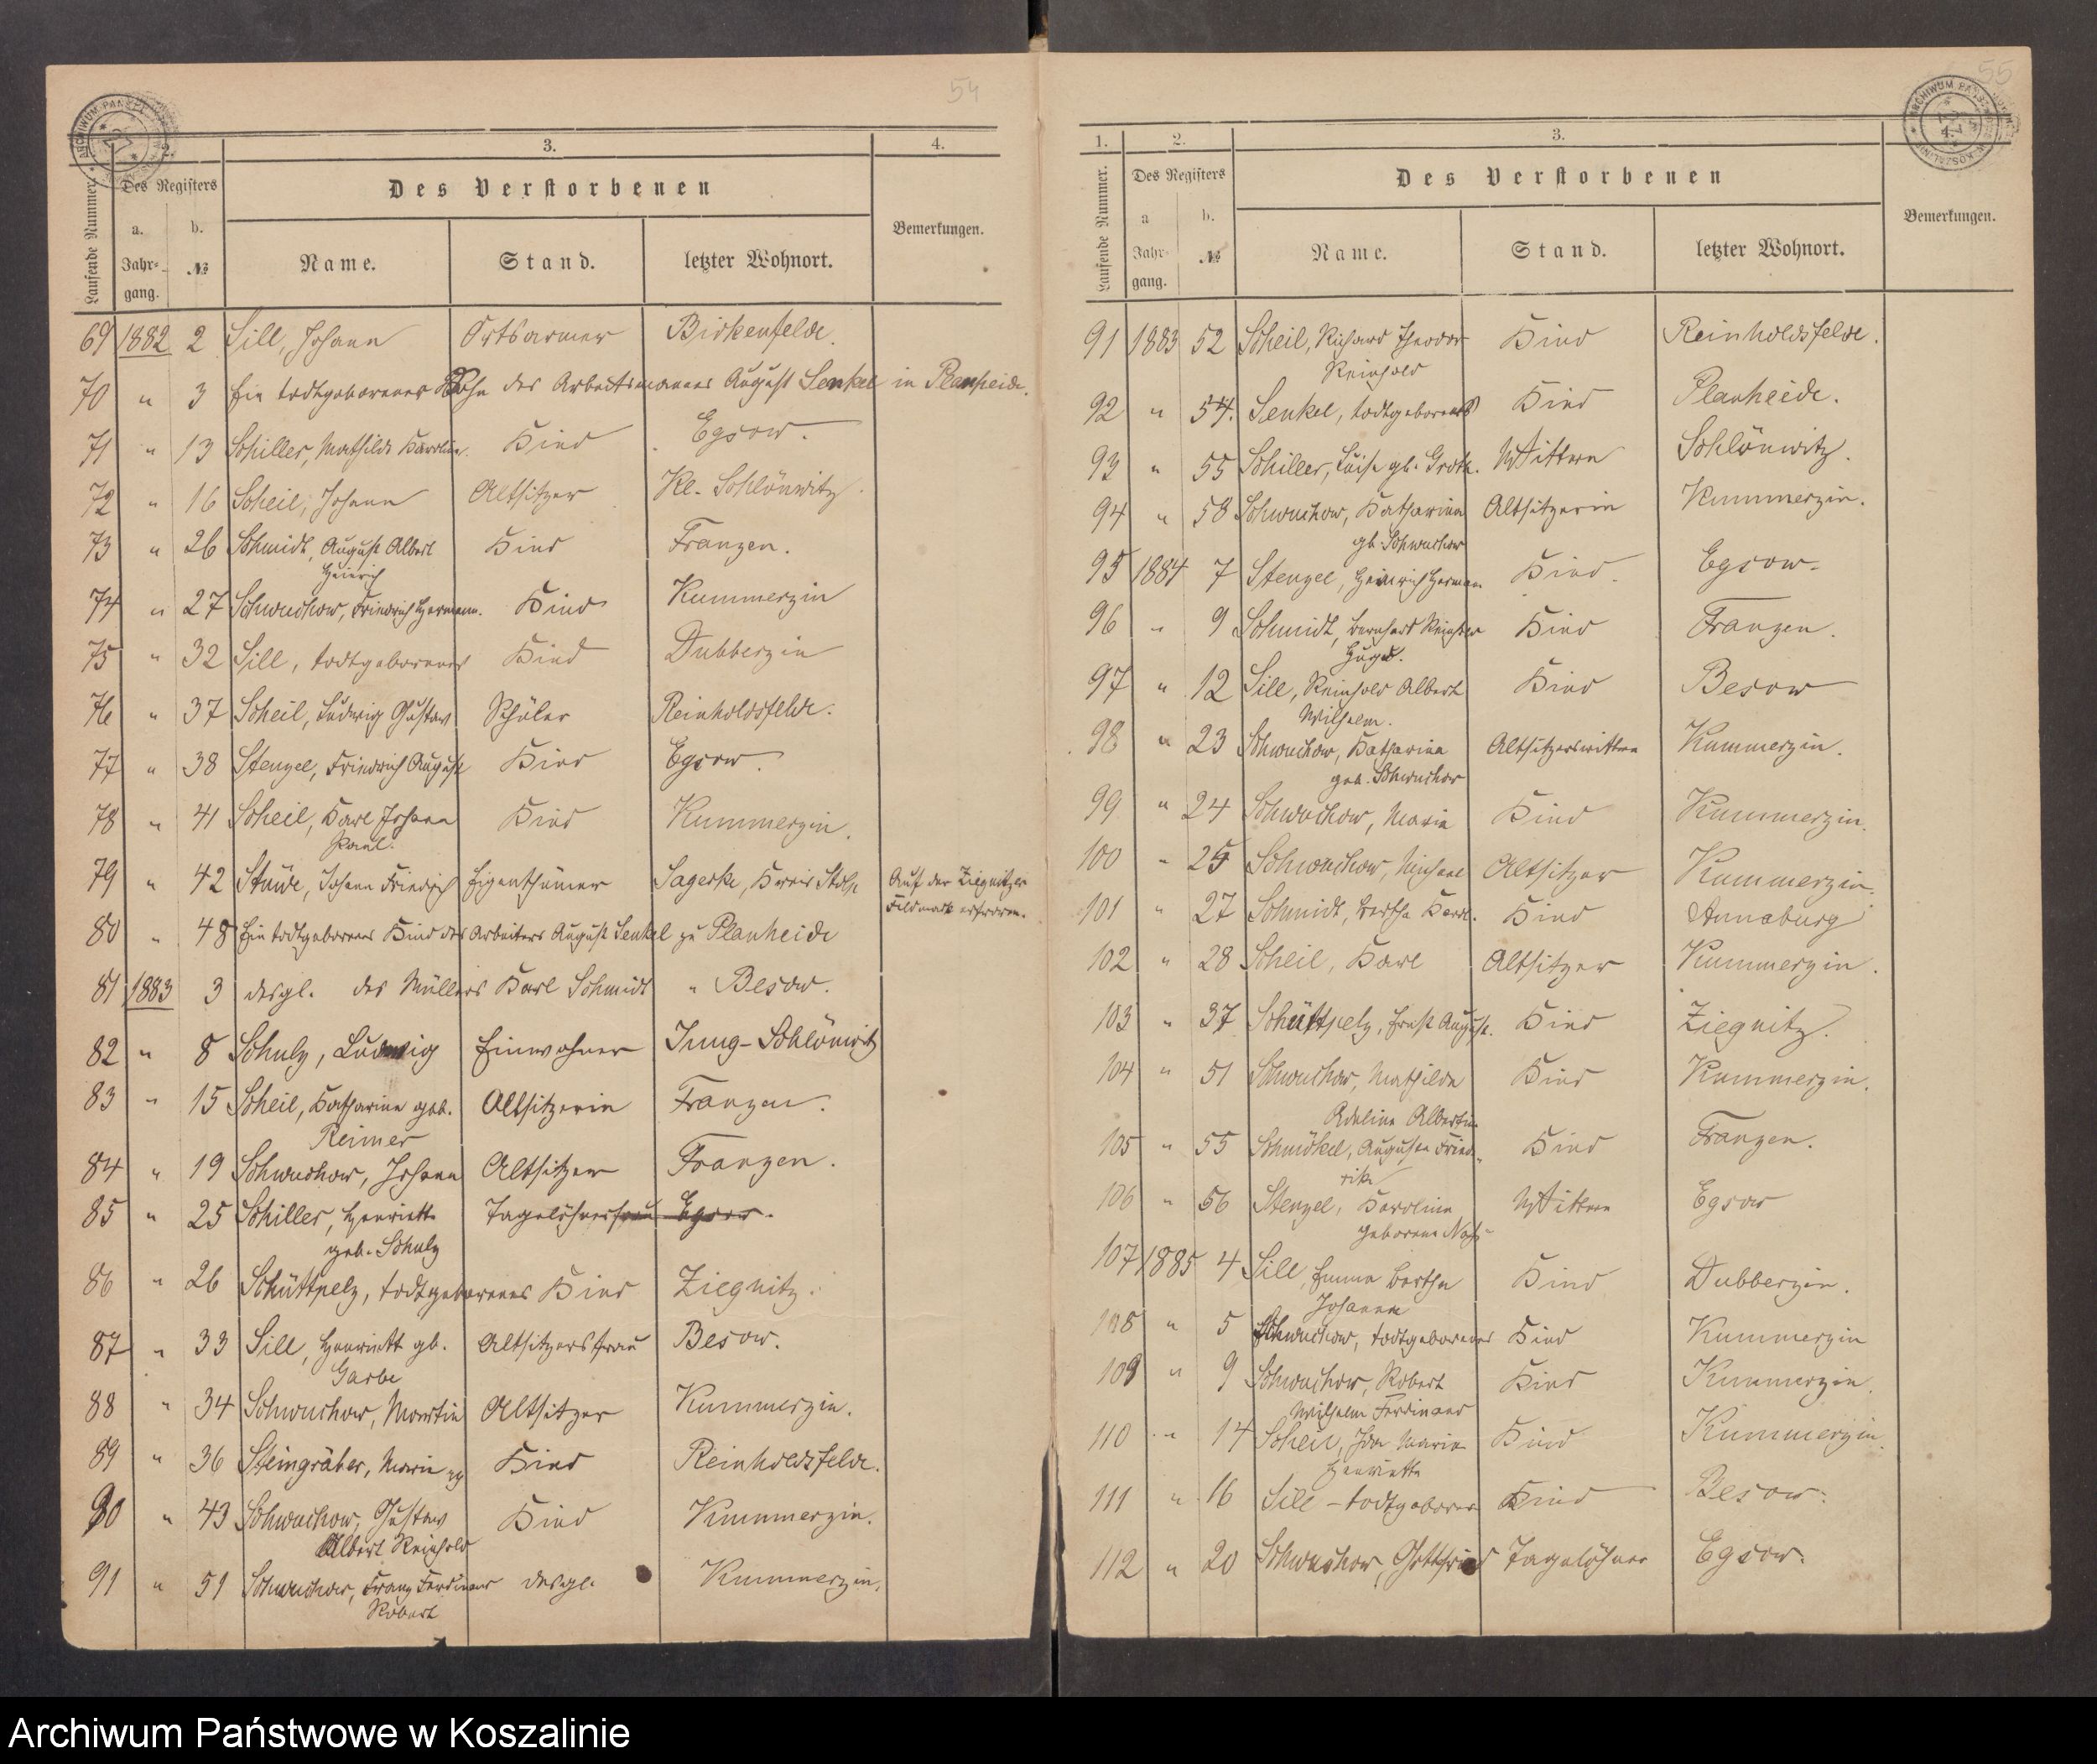 54
1.
2.
3.
4.
Laufende Nummer.
Des Registers
Des Verstorbenen
Bemerkungen.
a.
b.
Jahr-
gang.
№
Name.
Stand.
letzter Wohnort.
69 1882 2 Sill, Johann Ortsarmer Birkenfelde.
70 " 3 Ein todtgeborener Sohn des Arbeitsmannes August Senkel in Planheide.
71 " 13 Schiller, Mathilde Karoline. Kind Egsow.
72 " 16 Scheil, Johann Altsitzer Kl. Schlönwitz.
73 " 26 Schmidt, August Albert Kind Franzen.
Heinrich
74 " 27 Schwuchow, Friedrich Hermann. Kind Kummerzin
75 " 32 Sill, todtgeborenes Kind Dubberzin
76 " 37 Scheil, Ludwig Gustav Schüler Reinholdsfelde.
77 " 38 Stengel, Friedrich August Kind Egsow.
78 " 41 Scheil, Karl Johann Kind Kummerzin.
Paul.
79 " 42 Stüwe, Johann Friedrich Eigenthümer Sagerke, Kreis Stolp Auf der Ziegnitzer
Feldmark erfroren.
80 " 48 Ein todtgeborenes Kind des Arbeiters August Senkel zu Planheide
81 1883 3 desgl. des Müllers Karl Schmidt " Besow.
82 " 8 Schulz, Ludwig Einwohner Jung-Schlönwitz
83 " 15 Scheil, Katharine geb. Altsitzerin Franzen.
Reimer
84 " 19 Schwuchow, Johann Altsitzer Franzen.
85 " 25 Schiller, Henriette Tagelöhnersfrau Egsow.
geb. Schulz
86 " 26 Schüttpelz, todtgeborenes Kind Ziegnitz.
87 " 33 Sill, Henriett gb. Altsitzersfrau Besow.
Garbe
88 " 34 Schwuchow, Martin Altsitzer Kummerzin.
89 " 36 Steingräber, Marie Kind Reinholdsfelde.
90 " 43 Schwuchow, Gustav Kind Kummerzin.
Albert Reinhold
91 " 51 Schwuchow, Franz Ferdinand desgl. Kummerzin.
Robert
55
1.
2.
3.
Laufende Nummer.
Des Registers
Des Verstorbenen
Bemerkungen.
a
b.
Jahr-
gang.
№
Name.
Stand.
letzter Wohnort.
91 1883 52 Scheil, Richard Theodor Kind Reinholdsfelde.
Reinhold
92 " 54. Senkel, todtgeborenes Kind Planheide.
93 " 55 Schiller, Luise gb. Groth. Wittwe Schlönwitz.
94 " 58 Schwuchow, Katharina Altsitzerin Kummerzin.
gb. Schwuchow
95 1884 7 Stengel, Heinrich Herman Kind. Egsow.
96 " 9 Schmidt, Bernhard Kind Franzen.
Hugo.
97 " 12 Sill, Reinhold Albert Kind Besow
Wilhelm.
98 " 23 Schwuchow, Katharina Altsitzerswittwe Kummerzin.
geb. Schwuchow
99 " 24 Schwuchow, Maria Kind Kummerzin.
100 " 25 Schwuchow, Michael Altsitzer Kummerzin.
101 " 27 Schmidt, Bertha Karol. Kind Annaburg
102 " 28 Scheil, Karl Altsitzer Kummerzin.
103 " 37 Schüttpelz, Ernst August. Kind Ziegnitz.
104 " 51 Schwuchow, Mathilde Kind Kummerzin.
Adeline Albertine
105 " 55 Schmökel, Auguste Fried- Kind Franzen.
rike
106 " 56 Stengel, Karoline Wittwe Egsow
geborene
107 1885 4 Sill, Emma Bertha Kind Dubberzin.
Johanne
108 " 5 Schwuchow, todtgeborenes Kind Kummerzin
109 " 9 Schwuchow, Robert Kind Kummerzin.
Wilhelm Ferdinand
110 " 14 Scheil, Ida Marie Kind Kummerzin.
Henriette
111 " 16 Sill - todtgeboren Kind Besow.
112 " 20 Schwuchow, Gottfried Tagelöhner Egsow.
Archiwum Państwowe w Koszalinie